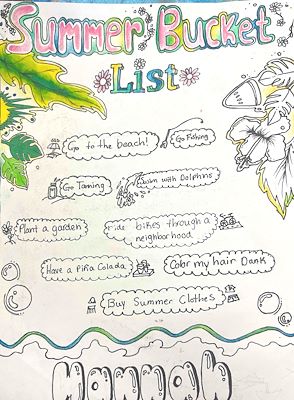 Summer Bucket
List
Go to the beach!
Go Fishing
Go Taning
Swim with Dolphins
Plant a garden
ride bikes through a
neighborhood
Have a Piña Colada
Color my hair Dark
Buy Summer Clothes
Hannah